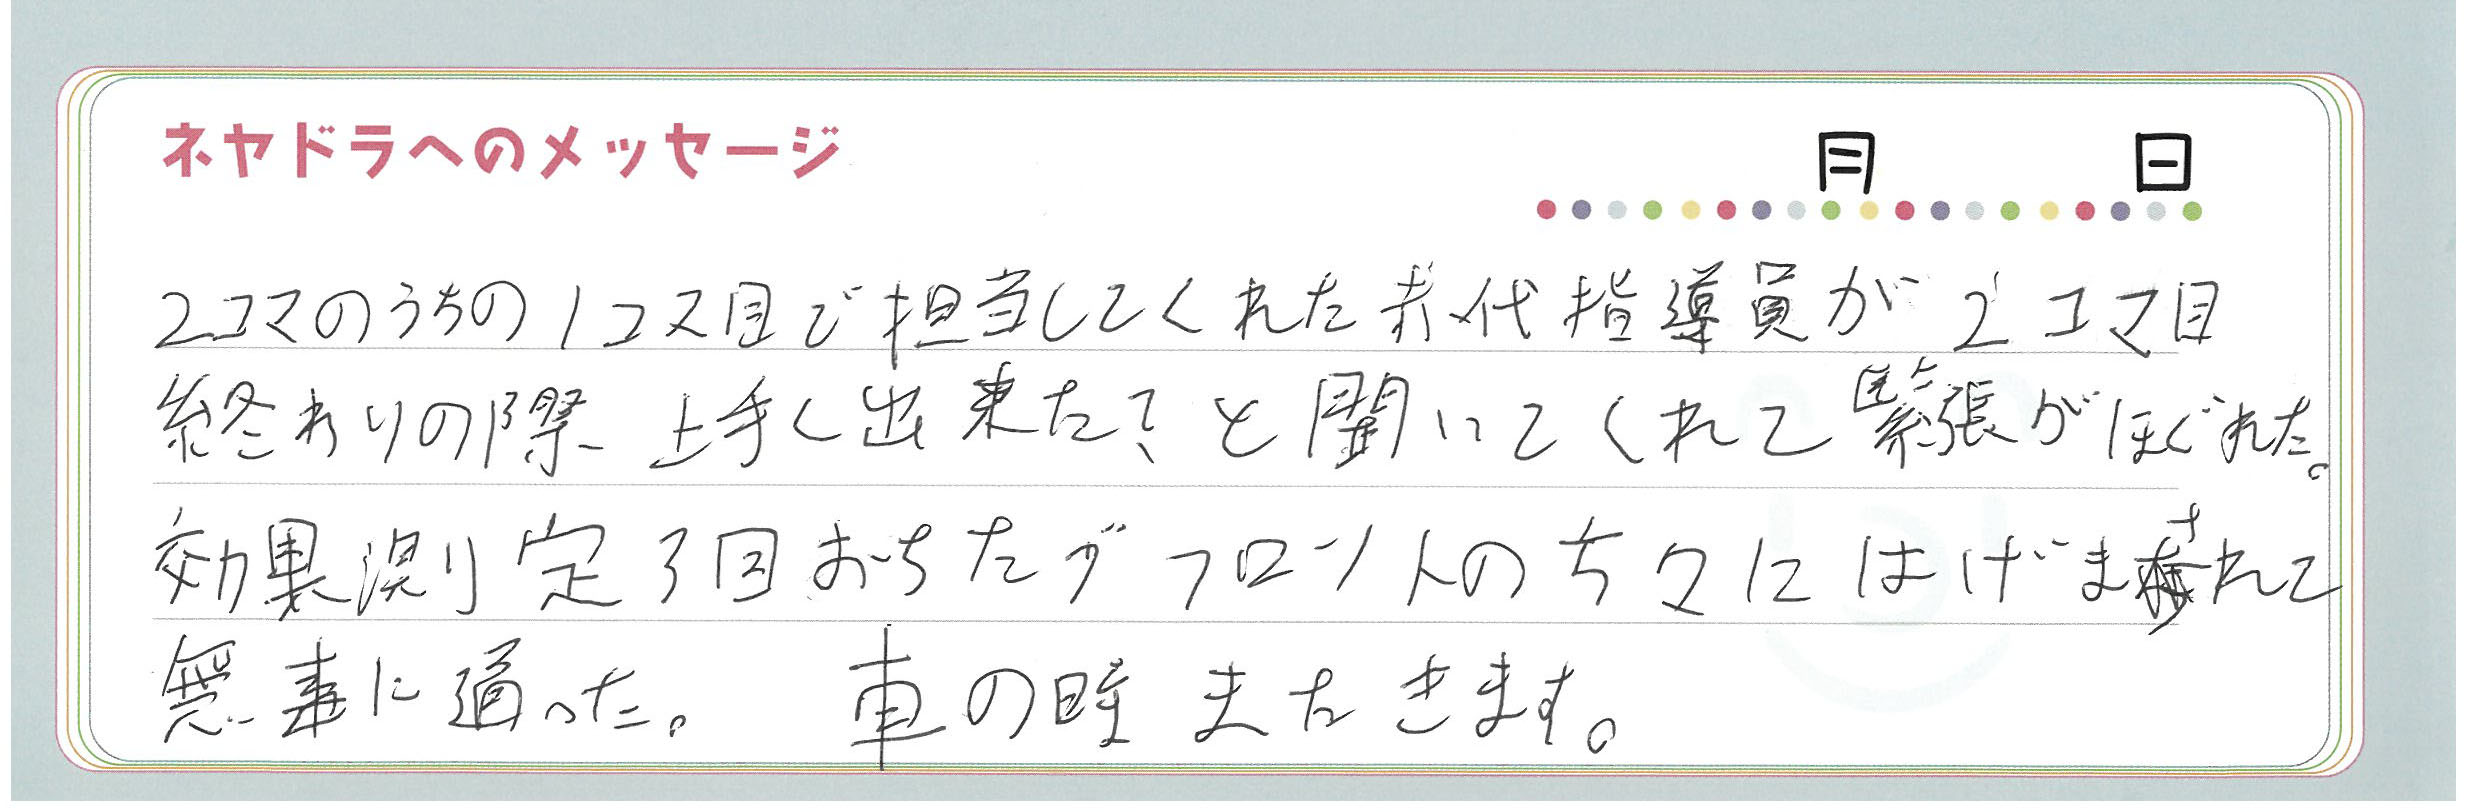 ネヤドラへのメッセージ
月 日
2コマのうちの1コマ目で担当してくれた赤代指導員が2コマ目
終わりの際 上手く出来た?と聞いてくれて緊張がほぐれた。
効果測定3回おちたがフロントの方々にはげまされて
無事に通った。 車の時またきます。